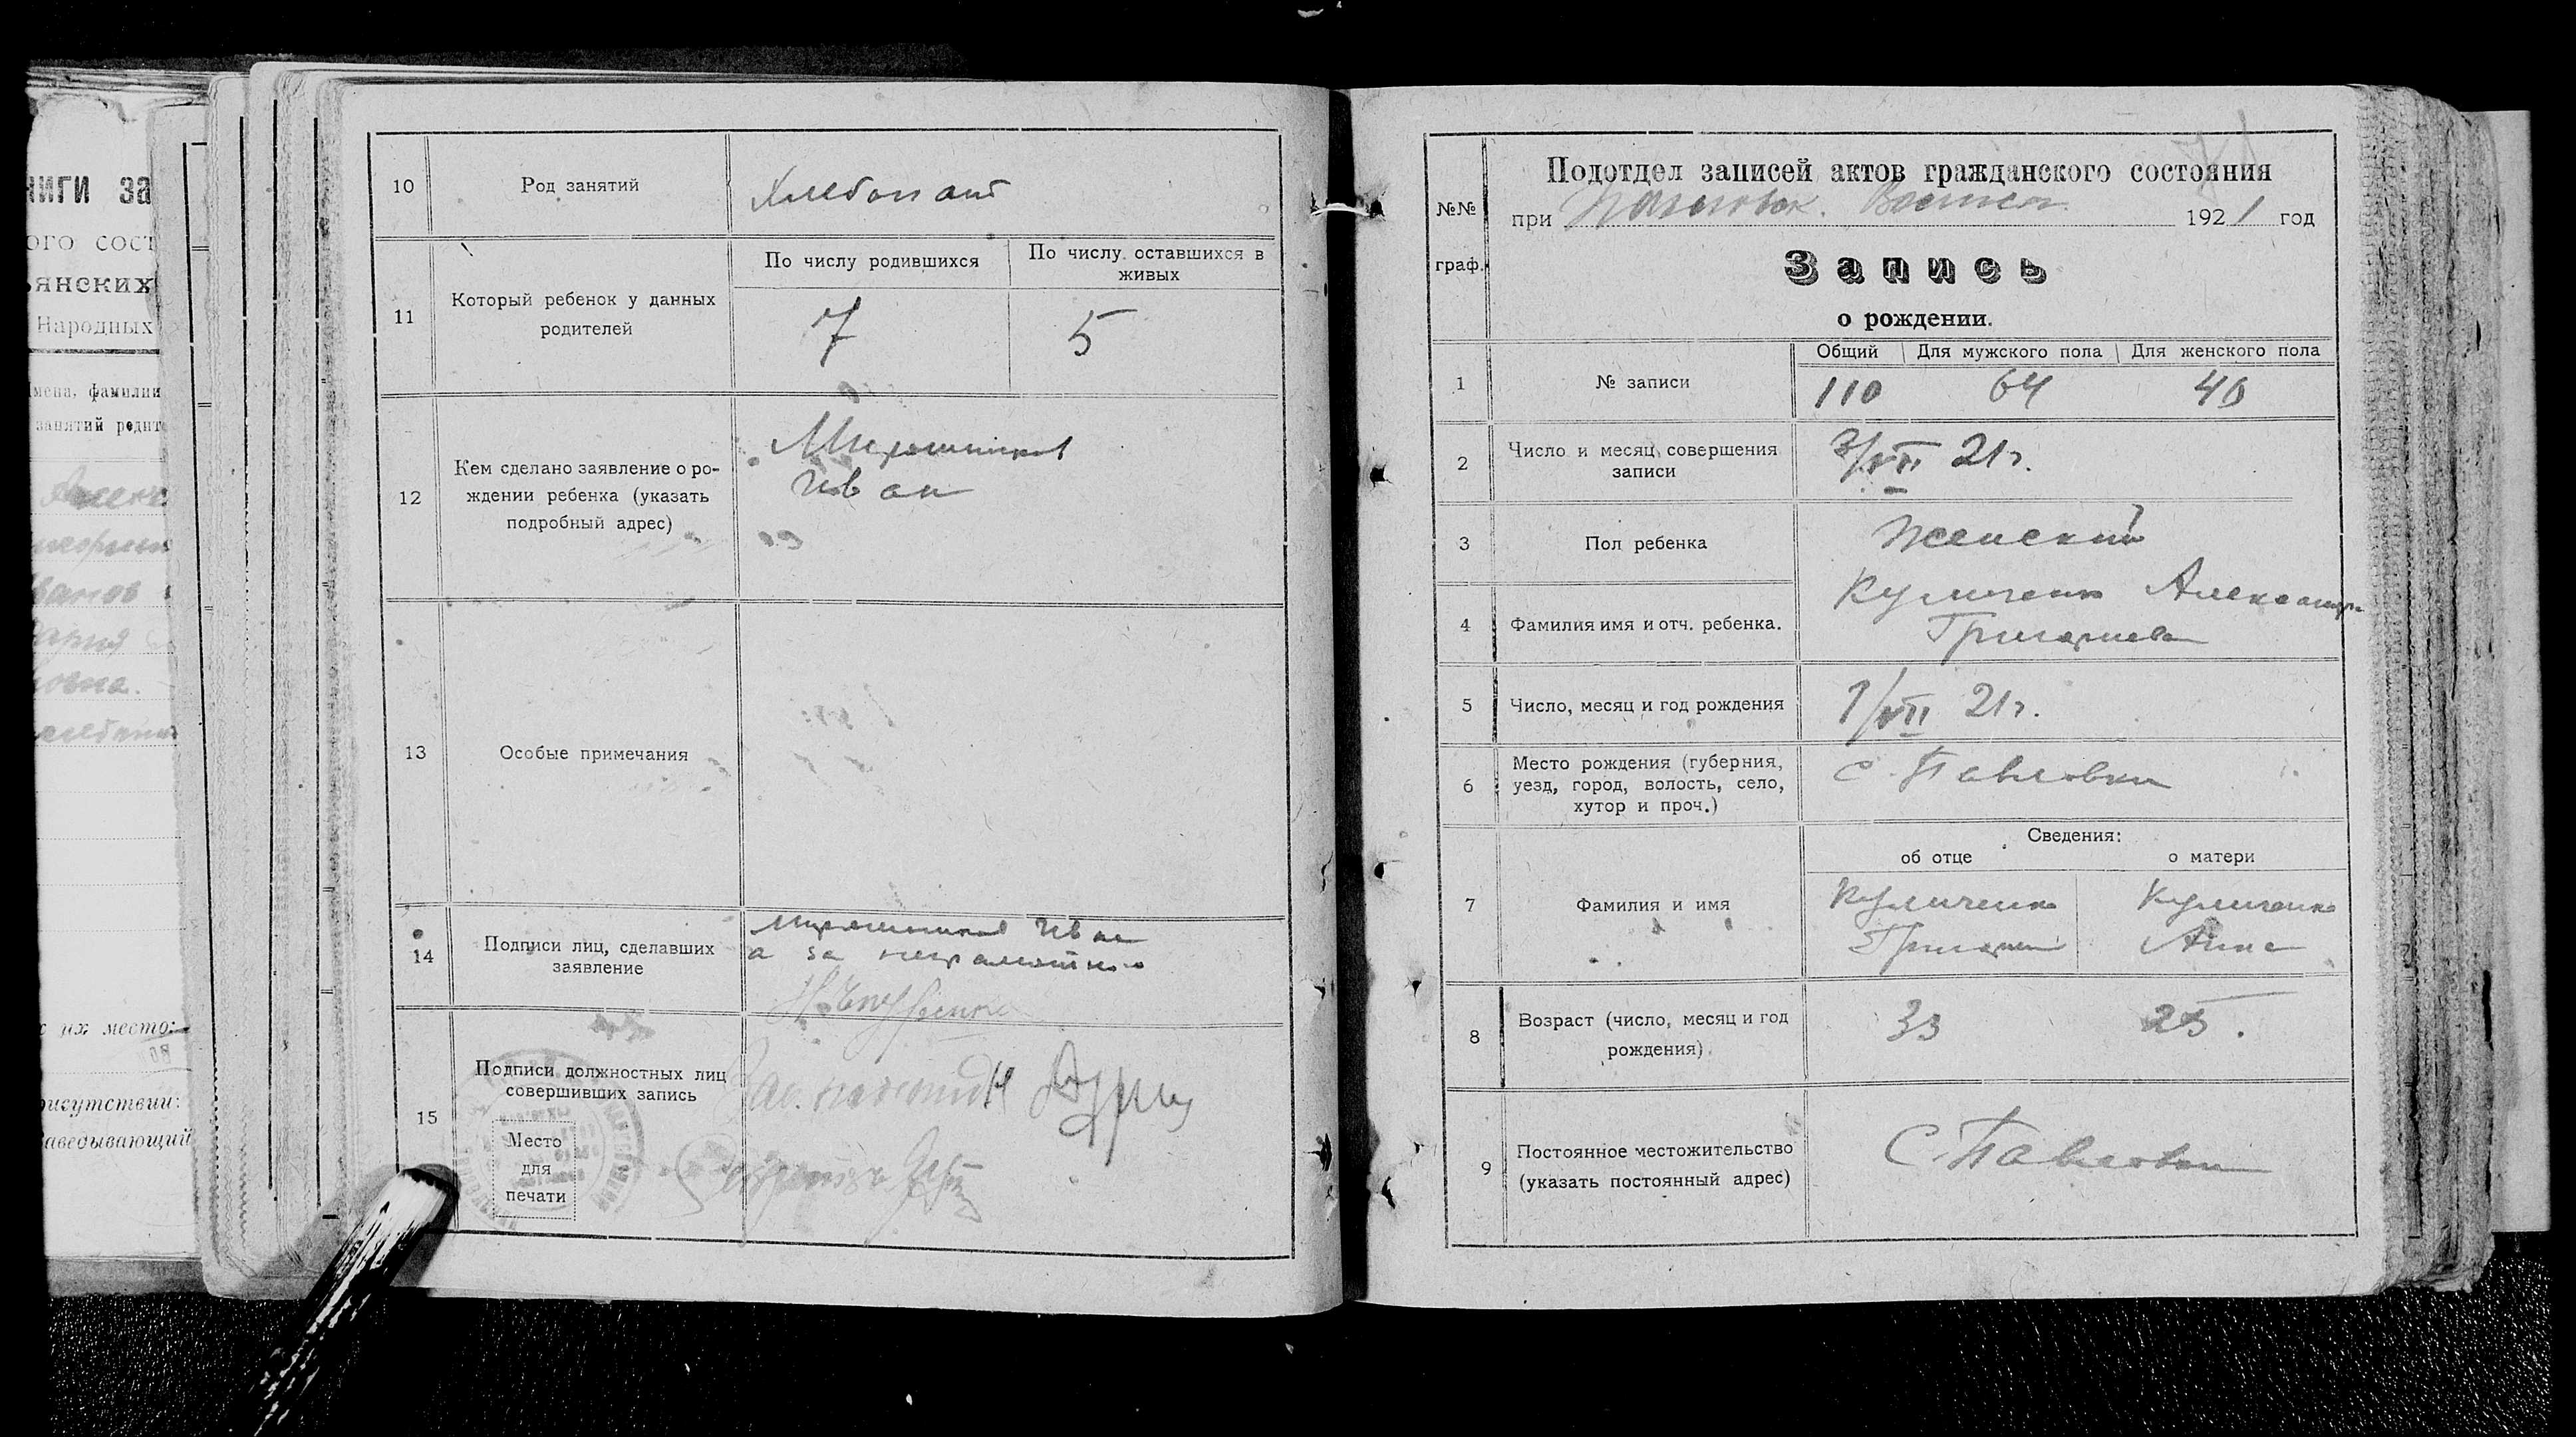 ниги за
ого сост
янских
Народных
мена, фамилии
занятий родит
вание
нович
их место:
рисутствии:
аведывающий
10 Род занятий Хлебопаш
11 Который ребенок у данных
родителей
По числу родившихся
По числу оставшихся в
живых
7 5
12 Кем сделано заявление о ро-
ждении ребенка (указать
подробный адрес)
Мирошников
Иван
13 Особые примечания
14 Подписи лиц, сделавших
заявление
Мирошников Иван
а за неграмотного
15 Подписи должностных лиц
совершивших запись
Место
для
печати
№№
граф.
Подотдел записей актов гражданского состояния
при Павловск. 1921 год
Запись
о рождении.
1 № записи
Общий Для мужского пола Для женского пола
110 64 46
2 Число и месяц совершения
записи
3/VII 21г.
3 Пол ребенка Женский
4 Фамилия имя и отч. ребенка.
Куличенко Александр
Григориева
5 Число, месяц и год рождения 1/VII 21г.
6 Место рождения (губерния,
уезд, город, волость, село,
хутор и проч.)
с. Павловки
Сведения:
об отце о матери
7 Фамилия и имя
Куличенко Куличенко
Григорий Анна
8 Возраст (число, месяц и год
рождения)
33 25.
9 Постоянное местожительство
(указать постоянный адрес)
С. Павловки